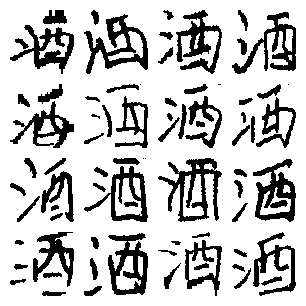 酒酒酒酒
酒酒酒酒
酒酒酒酒
酒酒酒酒